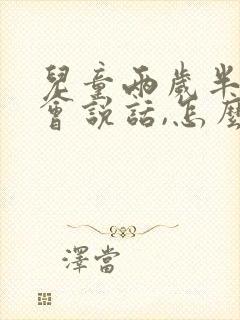 兒童兩歲半
會說話,怎麼
澤當